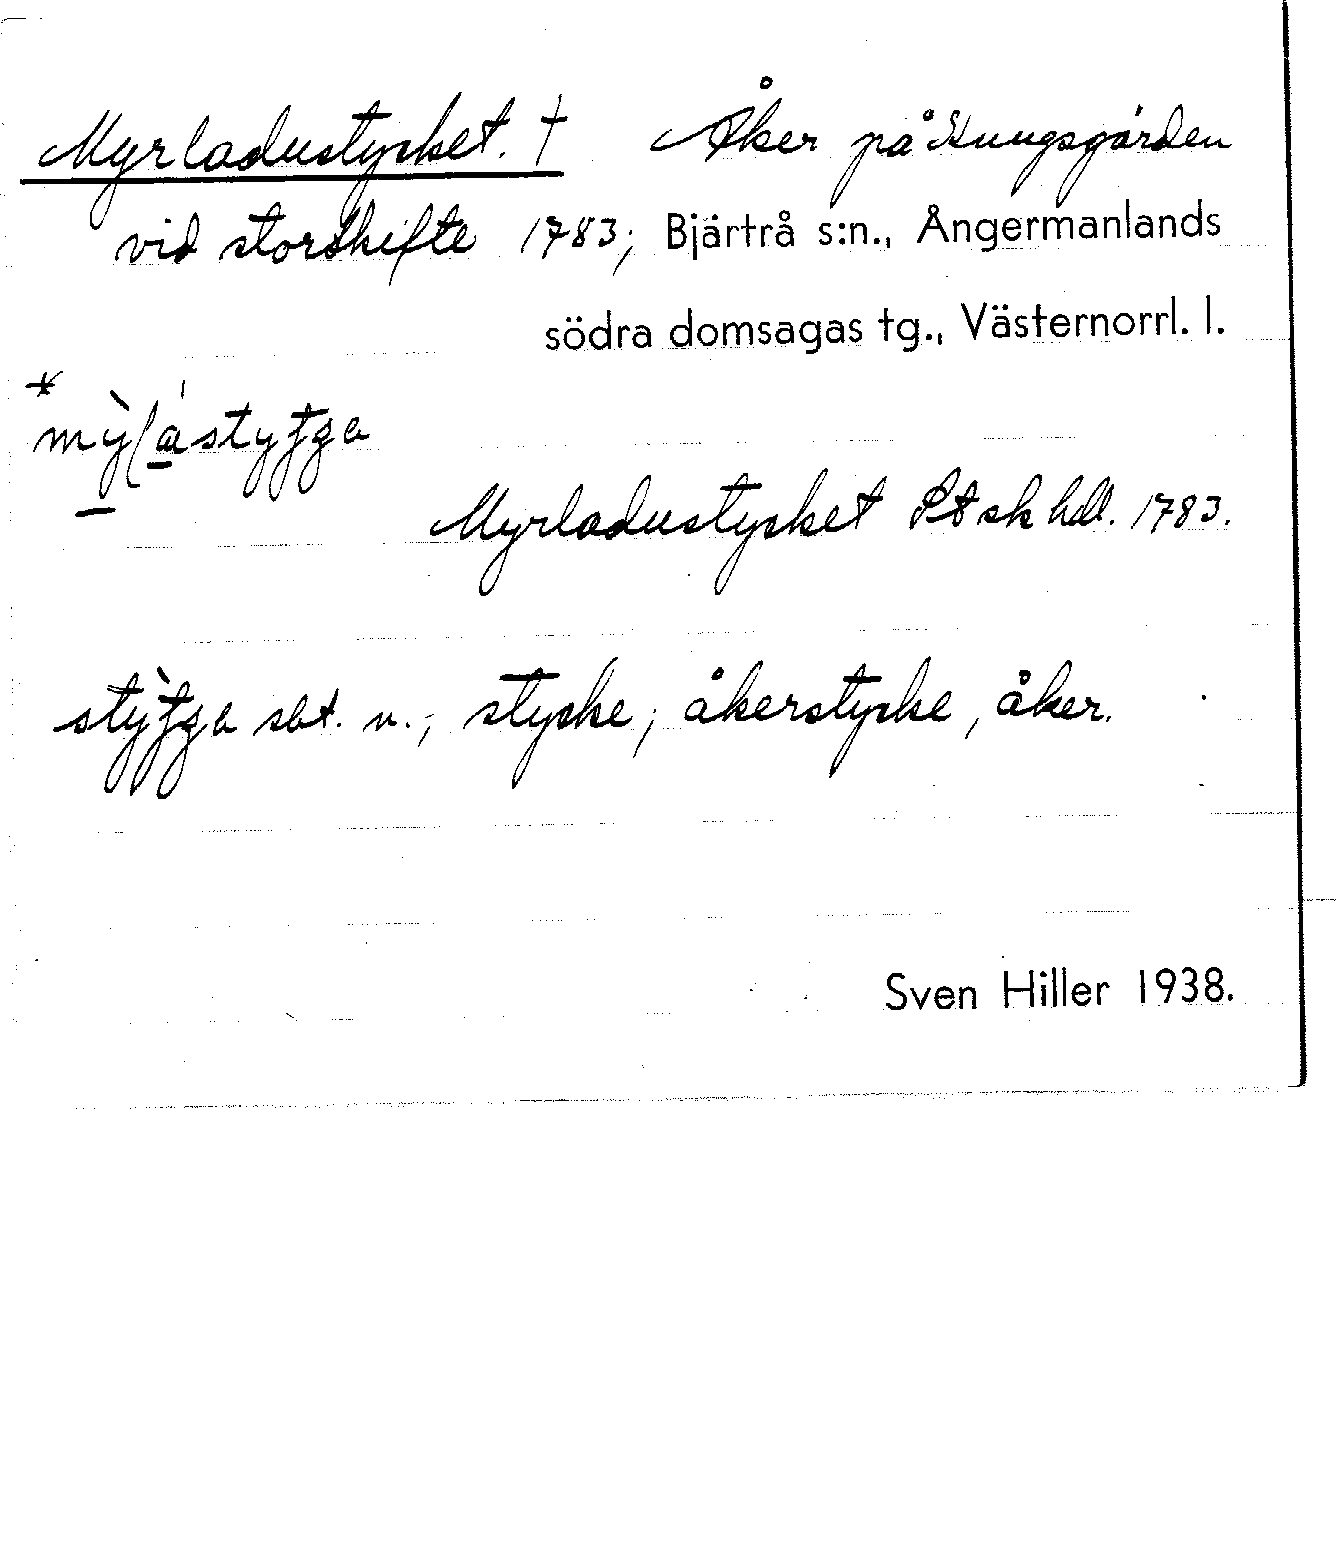 Myrladustycket. † Åker på Kungsgården
vid storskifte 1783; Bjärtrå s:n., Ångermanlands
södra domsagas tg., Västernorrl. l.
Myrladustycket St sk hdl. 1783.
sbt. n.; stycke; åkerstycke, åker.
Sven Hiller 1938.